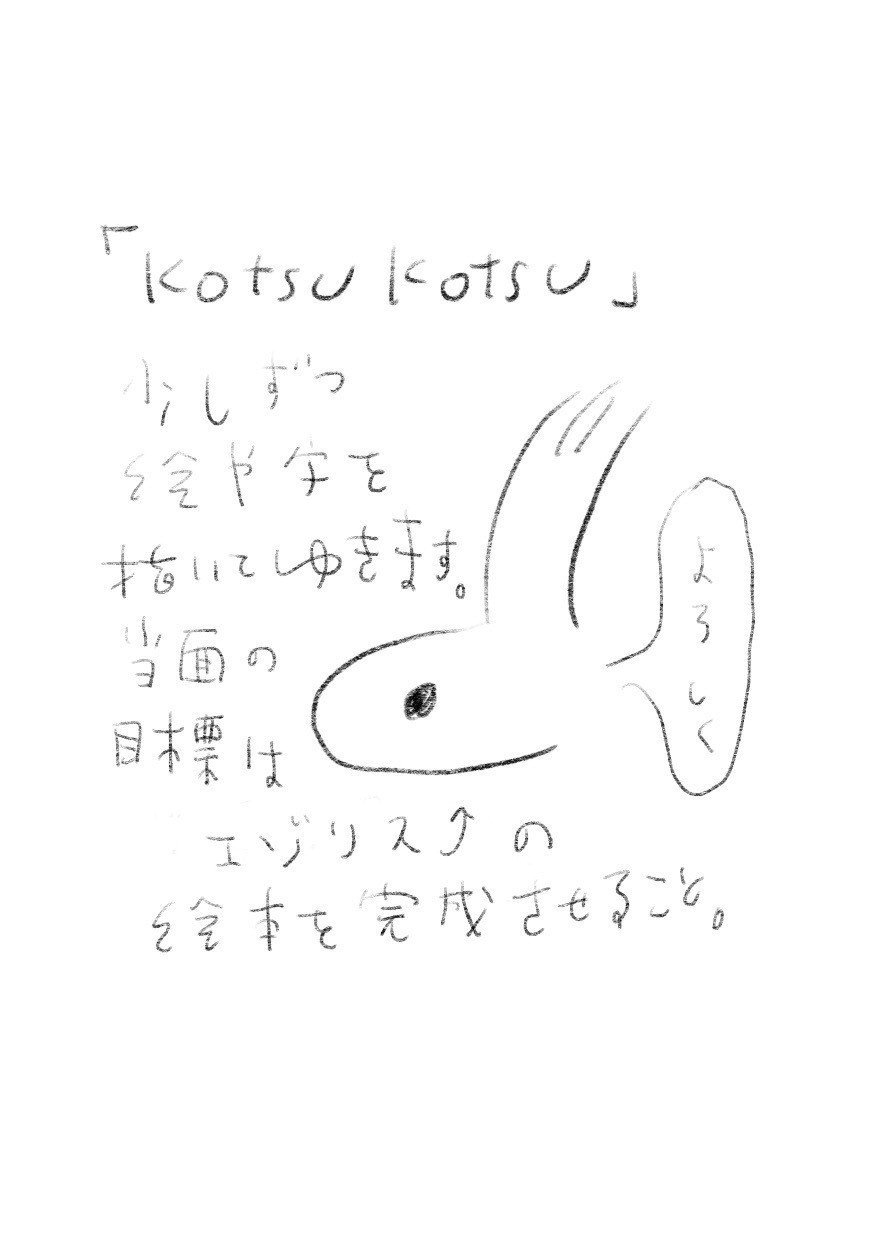 「kotsu kotsu」
少しずつ
絵や字を
描いてゆきます。
当面の
目標は
エゾリス↗の
絵本を完成させること。
よろしく